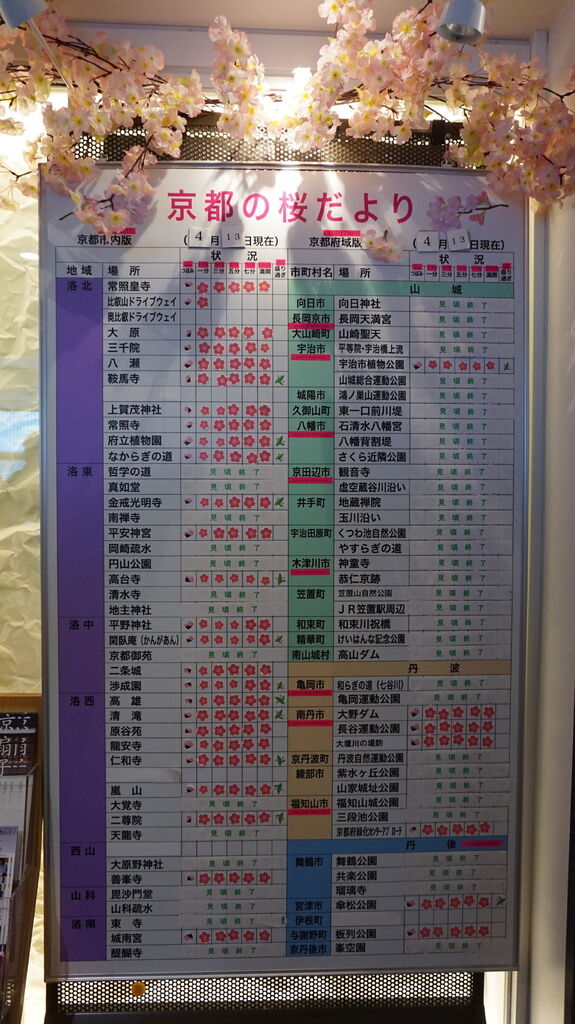 京都の桜だより
京都市内版 (4月13日現在) 京都府域版 (4月13日現在)
地域 場所 状況 つぼみ 一分 三分 五分 七分 満開 盛り過ぎ
洛北 常照皇寺
比叡山ドライブウェイ
奥比叡ドライブウェイ
大原
三千院
八瀬
鞍馬寺
上賀茂神社
常照寺
府立植物園
なからぎの道
洛東 哲学の道 見頃終了
真如堂 見頃終了
金戒光明寺
南禅寺 見頃終了
平安神宮
岡崎疏水 見頃終了
円山公園 見頃終了
高台寺
清水寺 見頃終了
地主神社 見頃終了
洛中 平野神社
閑臥庵(かんがあん)
京都御苑 見頃終了
二条城
渉成園
洛西 高雄
清滝
原谷苑
龍安寺
仁和寺
嵐山
大覚寺 見頃終了
二尊院
天龍寺 見頃終了
西山
大原野神社 見頃終了
善峯寺
山科 毘沙門堂 見頃終了
山科疏水 見頃終了
洛南 東寺 見頃終了
城南宮
醍醐寺 見頃終了
市町村名 場所 状況 つぼみ 一分 三分 五分 七分 満開 盛り過ぎ
山城
向日市 向日神社 見頃終了
長岡京市 長岡天満宮 見頃終了
大山崎町 山崎聖天 見頃終了
宇治市 平等院・宇治橋上流 見頃終了
宇治市植物公園
山城総合運動公園 見頃終了
城陽市 鴻ノ巣山運動公園 見頃終了
久御山町 東一口前川堤 見頃終了
八幡市 石清水八幡宮 見頃終了
八幡背割堤 見頃終了
さくら近隣公園 見頃終了
京田辺市 観音寺 見頃終了
虚空蔵谷川沿い 見頃終了
井手町 地蔵禅院 見頃終了
玉川沿い 見頃終了
宇治田原町 くつわ池自然公園 見頃終了
やすらぎの道 見頃終了
木津川市 神童寺 見頃終了
恭仁京跡 見頃終了
笠置町 笠置山自然公園 見頃終了
JR笠置駅周辺 見頃終了
和束町 和束川祝橋 見頃終了
精華町 けいはんな記念公園 見頃終了
南山城村 高山ダム 見頃終了
丹波
亀岡市 和らぎの道(七谷川) 見頃終了
亀岡運動公園 見頃終了
南丹市 大野ダム
長谷運動公園
大堰川の堤防
京丹波町 丹波自然運動公園 見頃終了
綾部市 紫水ヶ丘公園 見頃終了
山家城址公園 見頃終了
福知山市 福知山城公園 見頃終了
三段池公園 見頃終了
京都府緑化センターアプローチ
丹後
舞鶴市 舞鶴公園 見頃終了
共楽公園 見頃終了
瑠璃寺 見頃終了
宮津市 傘松公園
伊根町
与謝野町 板列公園
京丹後市 峯空園 見頃終了
京
扇
子